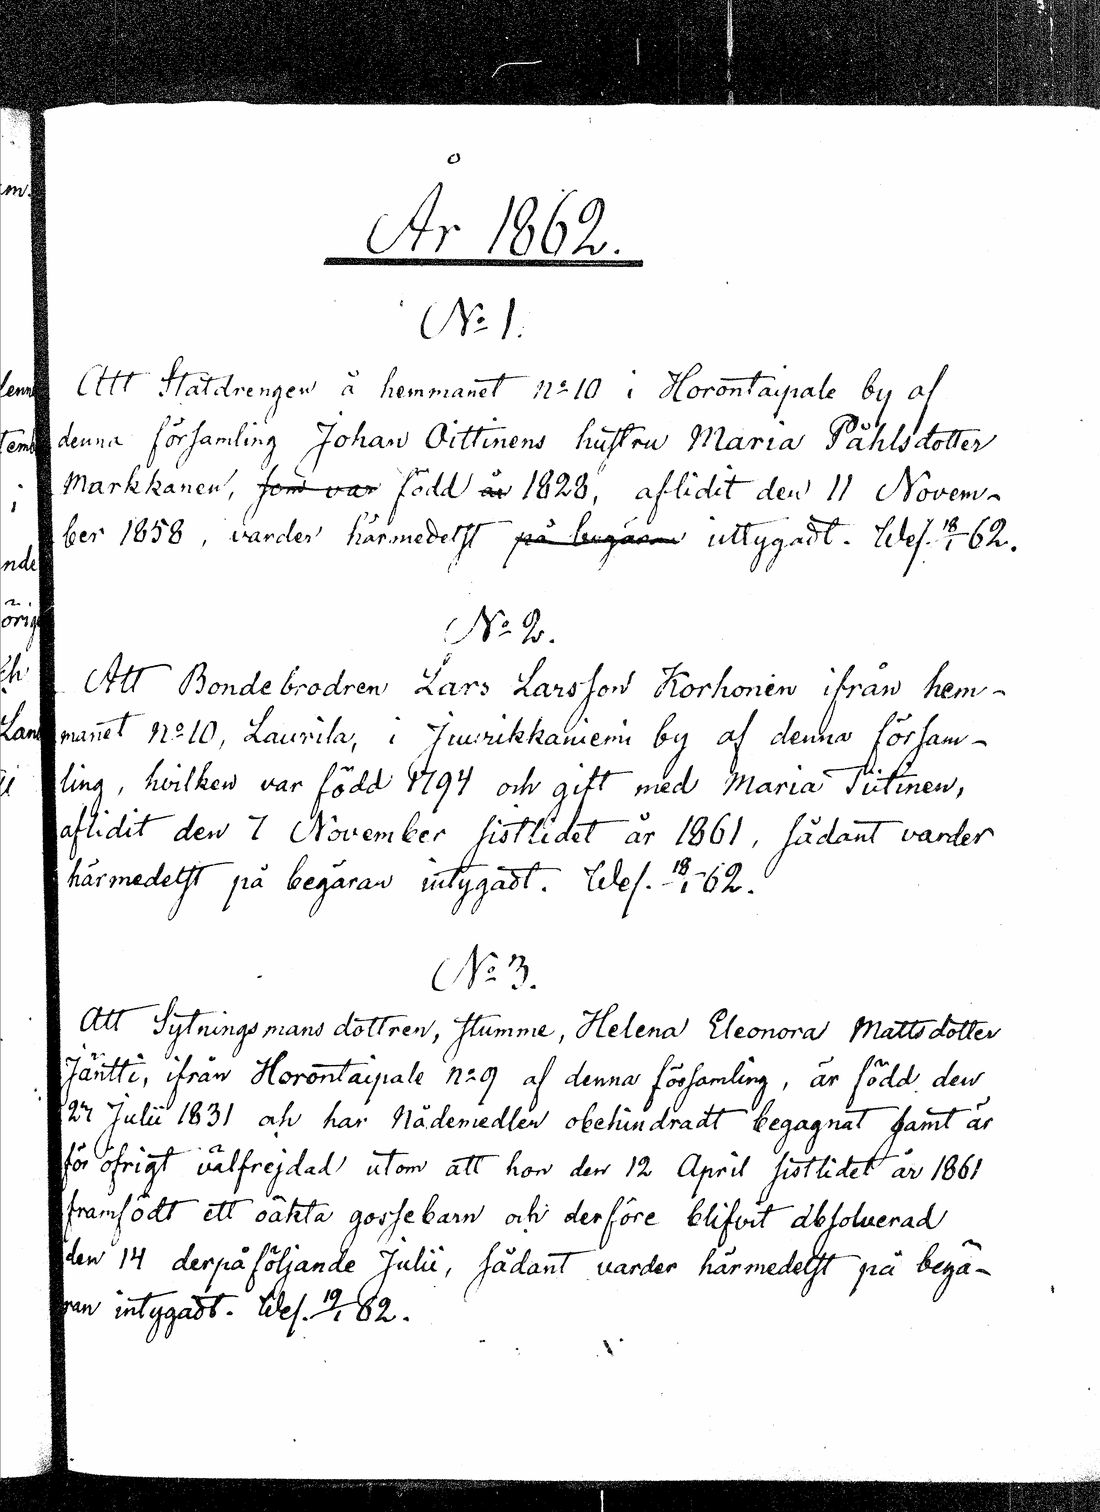 År 1862.
No 1.
Att Statdrengen å hemmanet no 10 i Horontaipale by af
denna församling Johan Oittinens hustru Maria Påhlsdotter
Markkanen, som var född år 1828, aflidit den 11 Novem-
ber 1858, varder härmedelst på begäran intygadt. Wes. 18/1 62.
No 2.
Att Bondebrodren Lars Larsson Korhonen ifrån hem-
manet no 10, Laurila, i Juurikkaniemi by af denna försam-
ling, hvilken var född 1794 och gift med Maria Tiitinen,
aflidit den 7 November sistlidet år 1861, sådant varder
härmedelst på begäran intygadt. Wes. 18/1 62.
No 3.
Att Sytningsmansdottren, stumme, Helena Eleonora Mattsdotter
Jäntti, ifrån Horontaipale no 9 af denna församling, är född den
27 Julii 1831 och har Nådemedlen obehindradt begagnat samt är
för öfrigt välfrejdad utom att hon den 12 April sistlidet år 1861
framfödt ett oäkta gossebarn och derföre blifvit absolverad
den 14 derpåföljande Julii, sådant varder härmedelst på begä-
ran intygadt. Wes. 19/1 62.